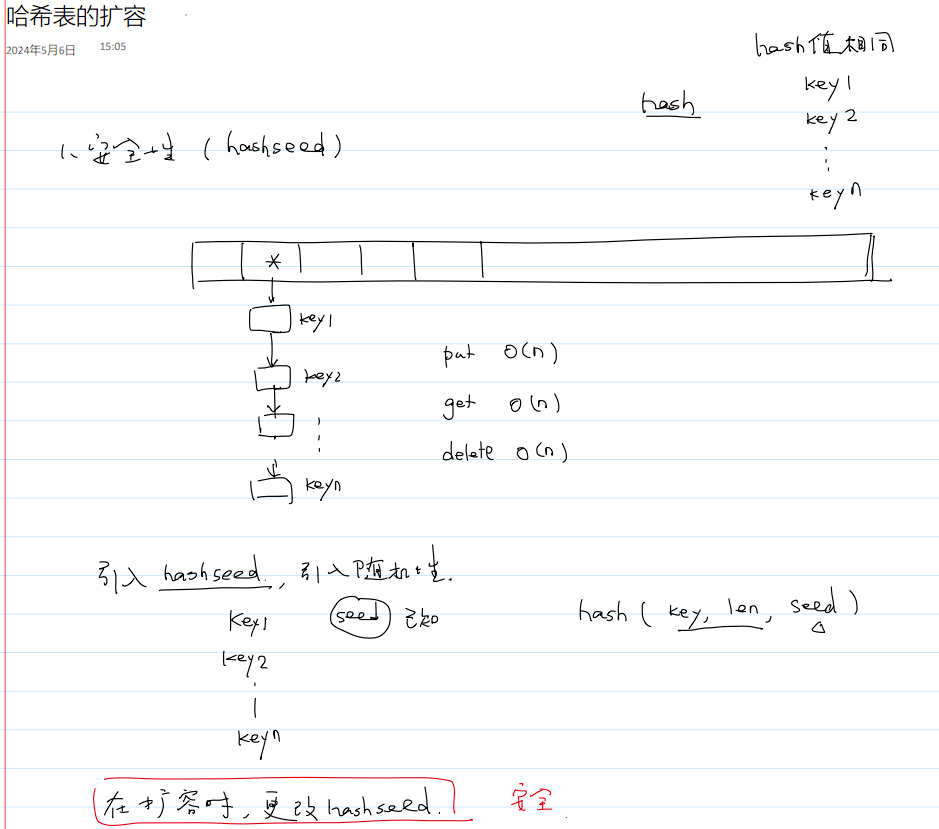 哈希表的扩容
2024年5月6日 15:05
hash值相同
hash
key1
key2
⋮
keyn
1、安全性 (hashseed)
*
key1
key2
⋮
keyn
put O(n)
get O(n)
delete O(n)
引入 hashseed, 引入随机性.
key1
key2
⋮
keyn
seed 已知
hash ( key, len, seed )
在扩容时, 更改 hashseed.
安全